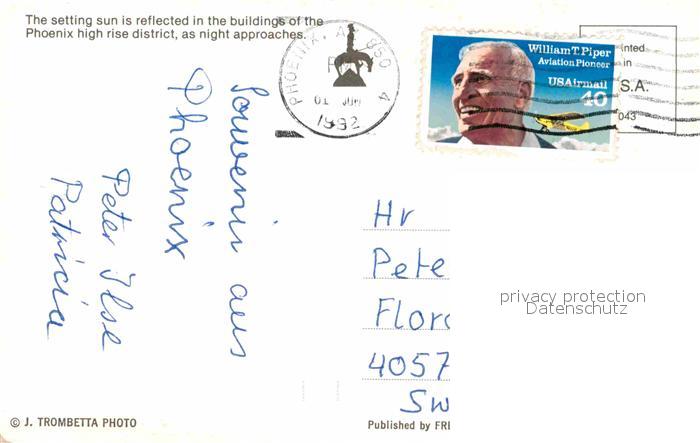 The setting sun is reflected in the buildings of the
Phoenix high rise district, as night approaches.
PHOENIX, AZ 850 4
01 JUN
1992
William T. Piper
Aviation Pioneer
USAirmail
40
inted
in
S.A.
043
Souvenir aus
Phoenix
Peter Ilse
Patricia
Hr
Pete
Flor
4057
Sw
privacy protection
Datenschutz
© J. TROMBETTA PHOTO
Published by FRI